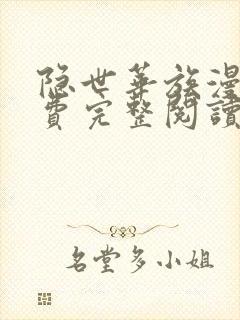 隐世华族漫
费完整閱讀
名堂多小姐